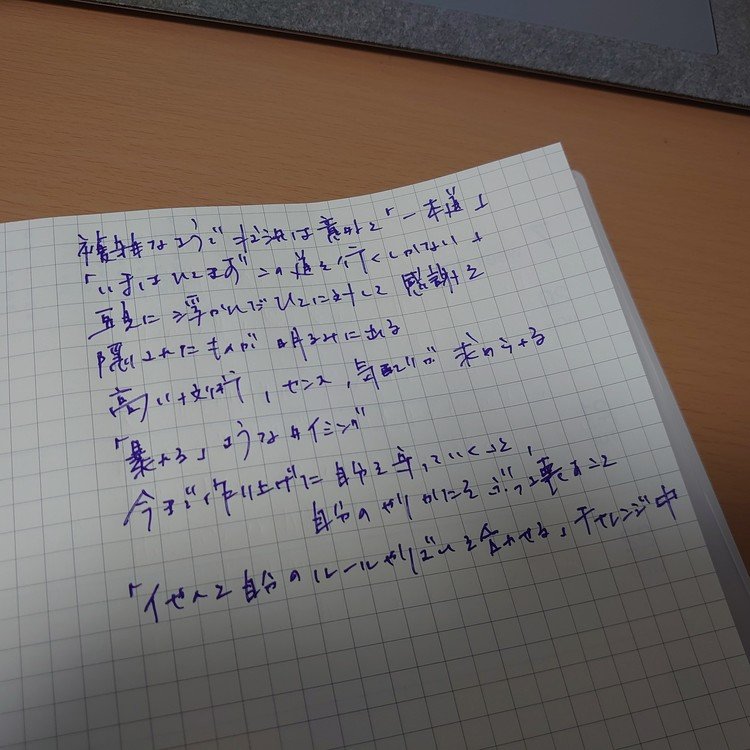 複雑なようで状況は意外と「一本道」
「いまはひとまず この道を行くしかない」
互いに 浮かんだひとに対して 感謝する
隠されたものが 明るみに出る
高い, センス, 気配りが 求められる
「暴れる」ようなタイミング
今まで作り上げた 自分を守っていくこと,
自分のやりかたをぶっ壊すこと
自分のルールやリズムを合わせる, チャレンジ中